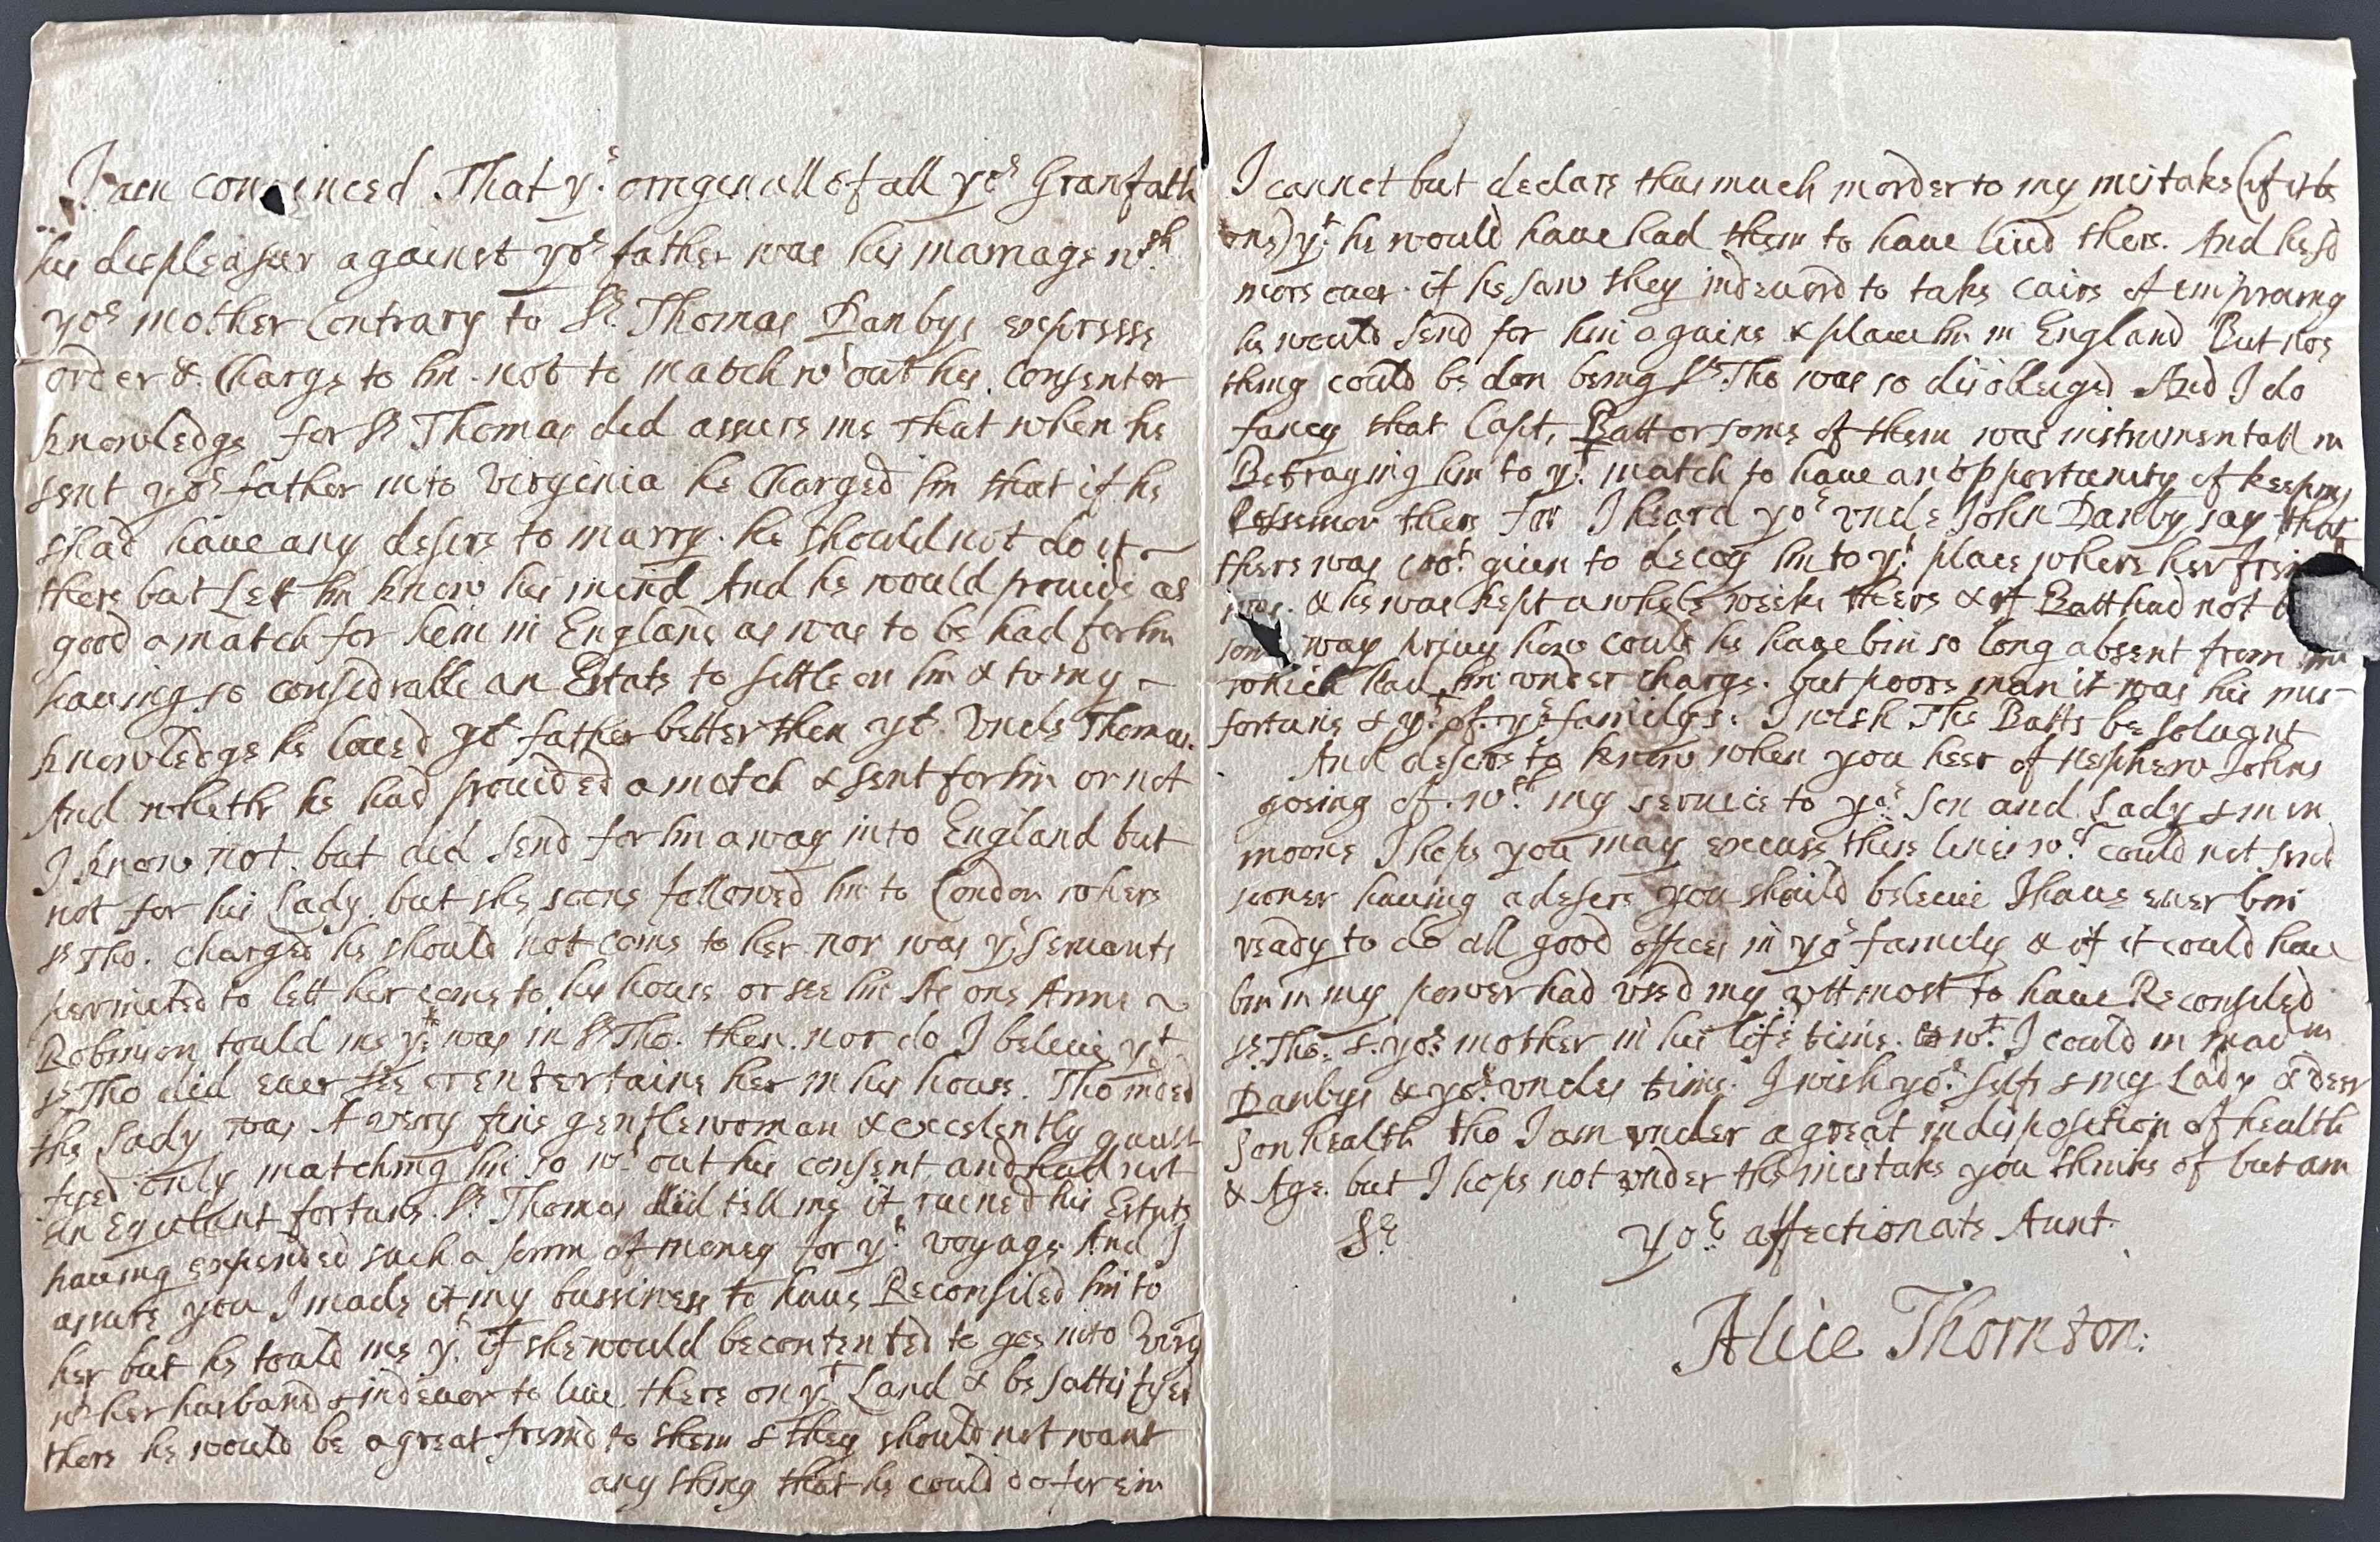 I am convinced That yͤ orregenall of all yoͬ Granfath
his displeasur against yoͬ father was his marriage wᵗʰ
yoͬ mother Contrary to Sͬ Thomas Danbys expresse
order & Charge to him not to match wᵗout his Consent or
knowledge for Sͬ Thomas did assure me that when he
sent yoͬ father into Virginia he Charged him that if he
shad have any desire to marry he should not do it
there but Lett him know his mind And he would provide as
good a match for heim in England as was to be had for him
having so considrable an Estate to settle on him & to my
knowledge he loued yoͬ father better then yoͬ Vncle Thomas
And whethr he had prouided a match & sent for him or not
I know not but did send for him away into England but
not for his Lady. but she soone followed him to London where
Sͬ Tho. charged he should not come to her nor was yͤ Seruants
permitted to lett her come to his house or see him As one Anne
Robinson tould me yᵗ was in Sͬ Tho. then. nor do I beleiue yᵗ
Sͬ Tho did euer see or entertaine her in his house. Tho indeed
the Lady was A very fine gentlewoman & excelently quall
fyed only matching him so wᵗout his consent, and had not
an Equilant fortune. Sͬ Thomas did tell me it ruined his Estate
having expended such a som of money for yͭ voyage And I
assure you I made it my bussiness to haue Reconsiled him to
her but he tould me yͭ if she would be contented to goe into Virg
wᵗ her husband & indeuor to liue there on yͭ Land & be sattisfyed
there he would be a great freind to them & they should not want
any thing that he could do for em
I cannot but declare thus much in order to my mistake (if it be
one) yᵗ he would haue had them to haue liued there. And he sd
more ouer if he saw they indeuord to take caire of improuing
he would send for him againe & place him in England But noe
thing could be don being Sͬ Tho was so disobleiged And I do
fancy that Capt. Batt or some of them was instrumentall in
Betraying him to yᵗ match to haue an opportunity of keeping
there for I heard yoͬ vncle John Danby say that
there was giuen to decoy him to yᵗ place where her frei
& he was kept a whole weeke there & if Batt had not
som way priuy how could he haue bin so long absent from
which had him vnder charge. but poore man it was his mis
fortune & yᵗ of yͤ familys. I wish The Batts be soluant
And desire to know when you heer of nephew Johns
goeing of. wᵗʰ my seruice to yoͬ Son and Lady
I hope you may excuse these lines wͨʰ could not send
sooner hauing a desire you should beleiue I haue euer bin
ready to do all good offices in yoͬ family & if it could haue
bin in my power had vsed my vttmost to haue Reconsiled
Sͬ Tho. & yoͬ mother in his life time. I could in madᵐ
Danbys & yoͬ vncles time. I wish yoͬ selfe & my Lady & deer
Son health tho I am vnder a great indisposition of health
& Age. but I hope not vnder the mistake you thinke of but am
Sͬ yoͬ affectionate Aunt.
Alice Thornton: